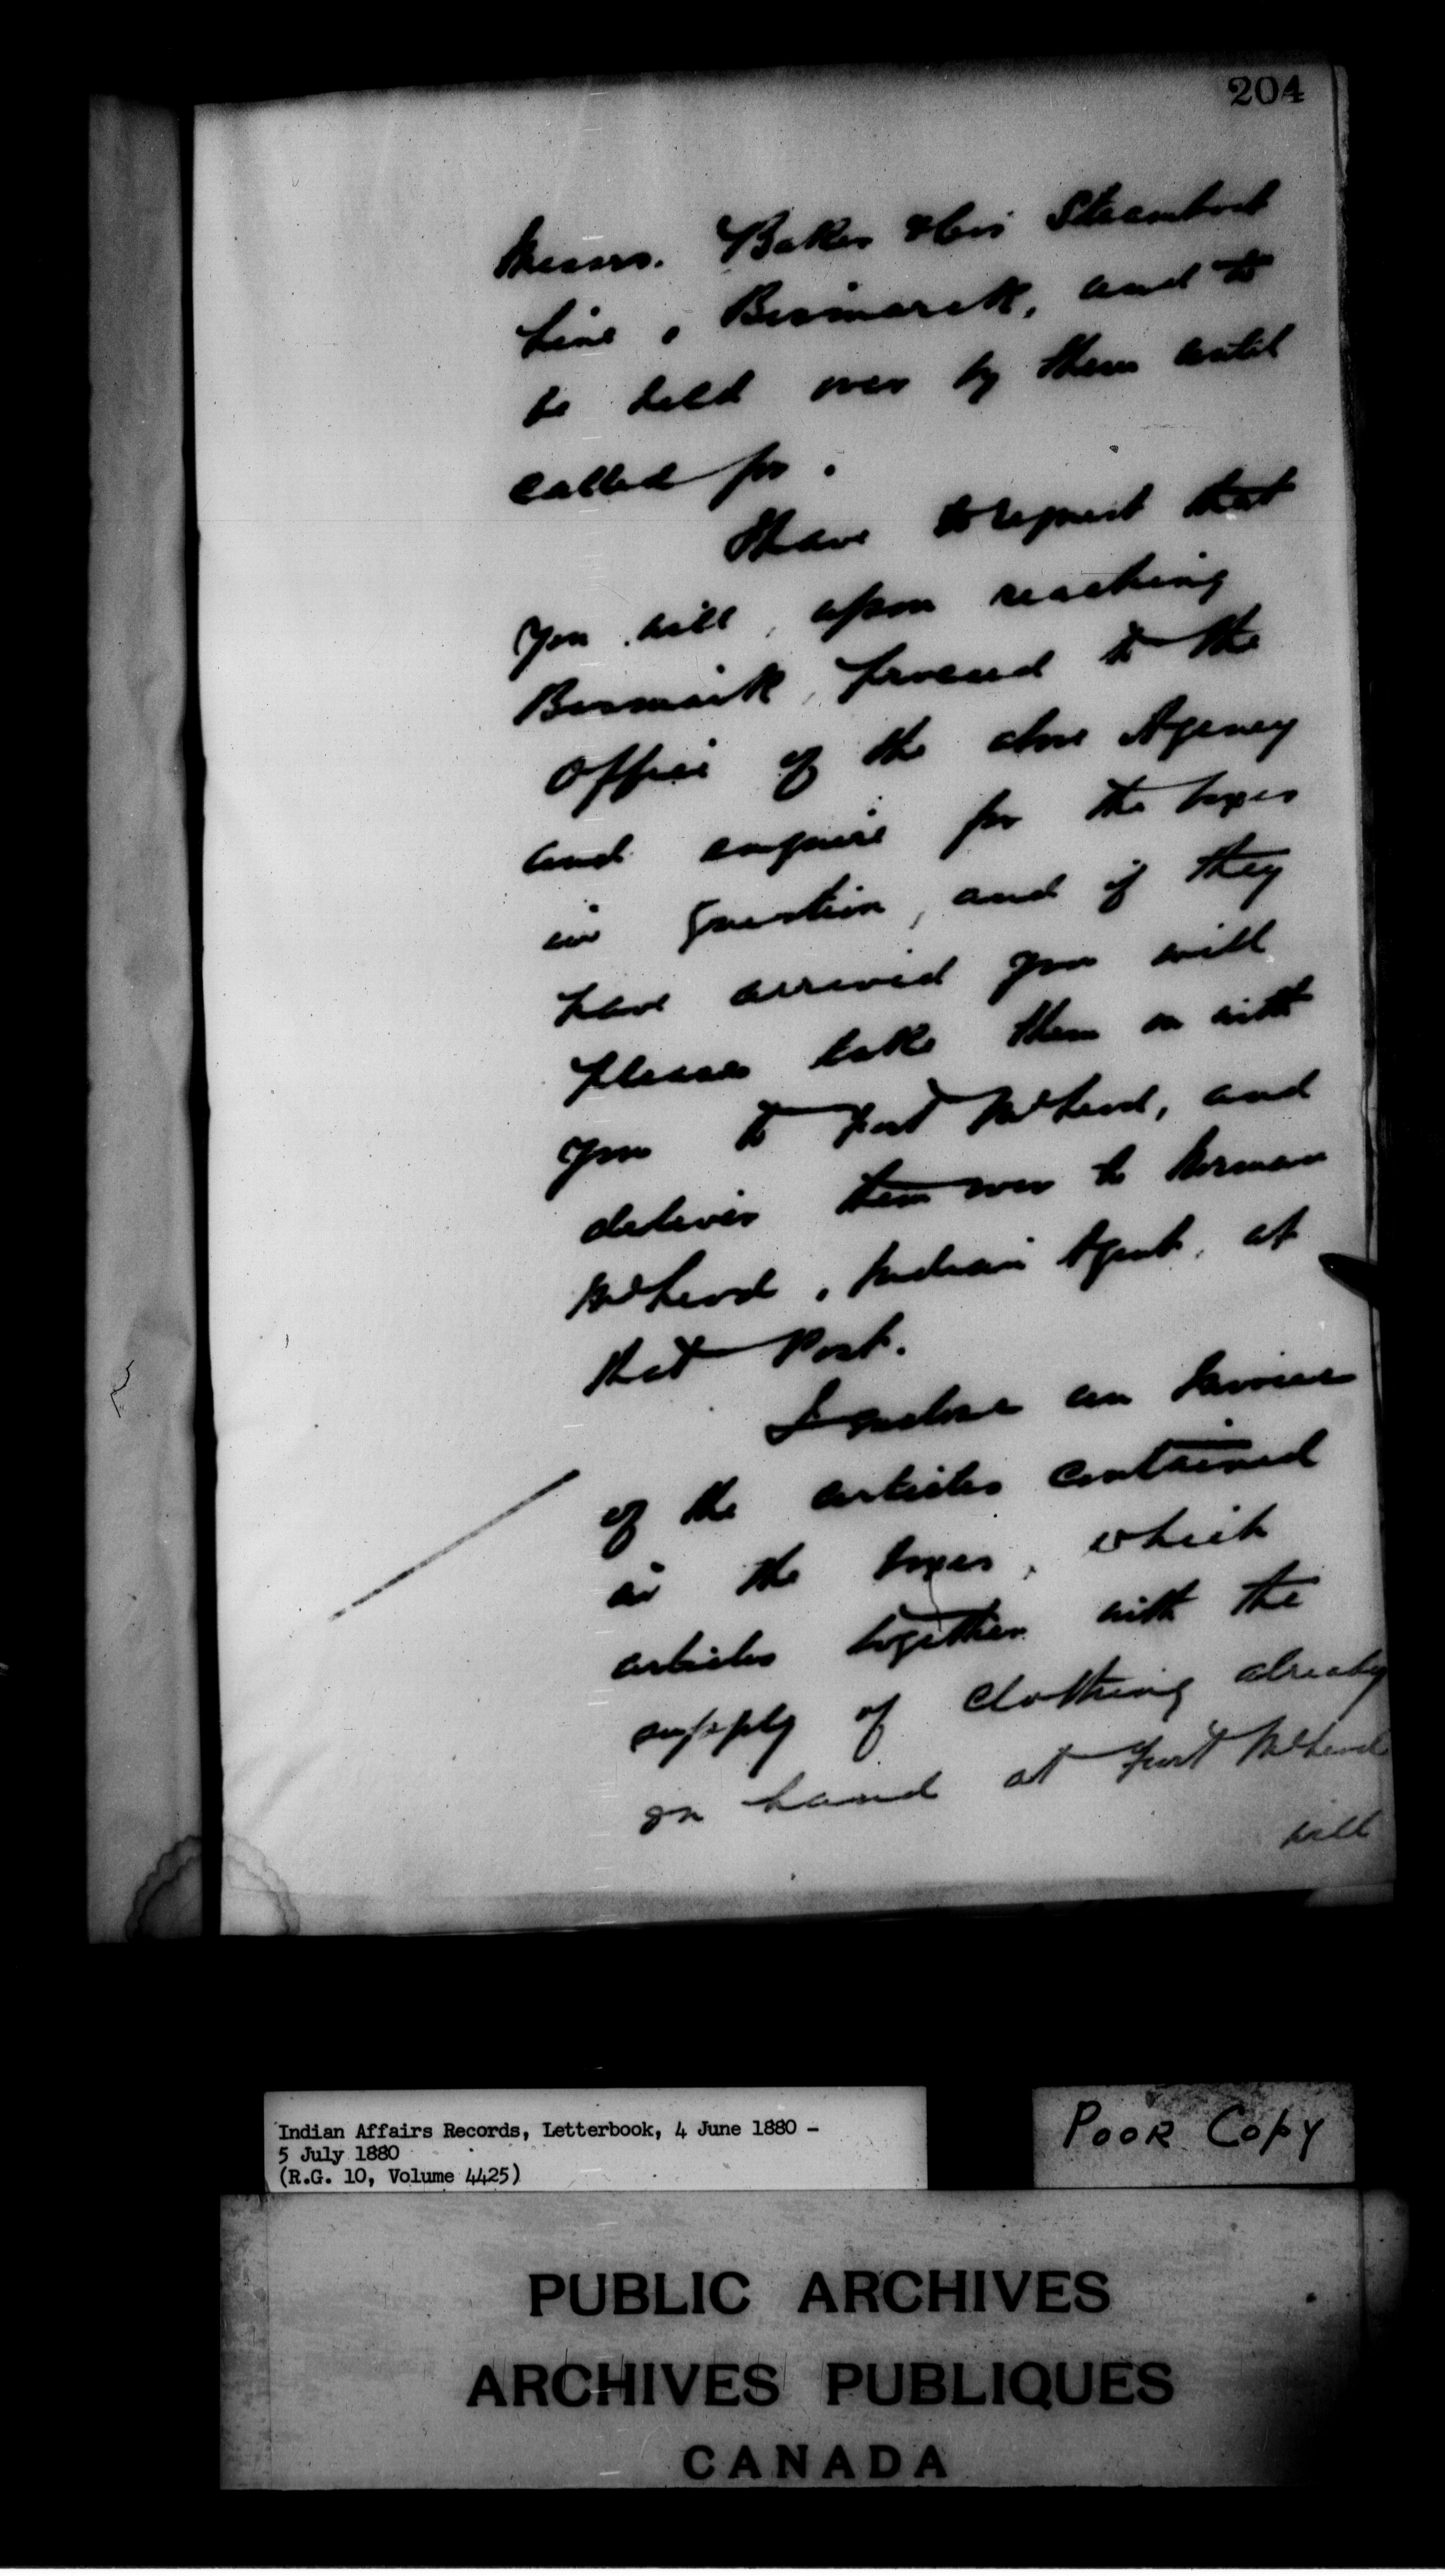 204
Messrs. Baker Steamboat
Line, Bismarck, and to
be held over by them until
called for.
I have to request that
you will, upon reaching
Bismark, proceed to the
Office of the above Agency
and enquire for the boxes
in question, and if they
have arrived you will
please take them on with
you to Fort McLeod, and
deliver them over to Norman
McLeod, Indian Agent, at
that Post.
I enclose an Invoice
of the articles contained
in the boxes, which
articles together with the
supply of clothing already
on hand at Fort McLeod
will
Indian Affairs Records, Letterbook, 4 June 1880 -
5 July 1880
(R.G. 10, Volume 4425)
POOR COPY
PUBLIC ARCHIVES
ARCHIVES PUBLIQUES
CANADA